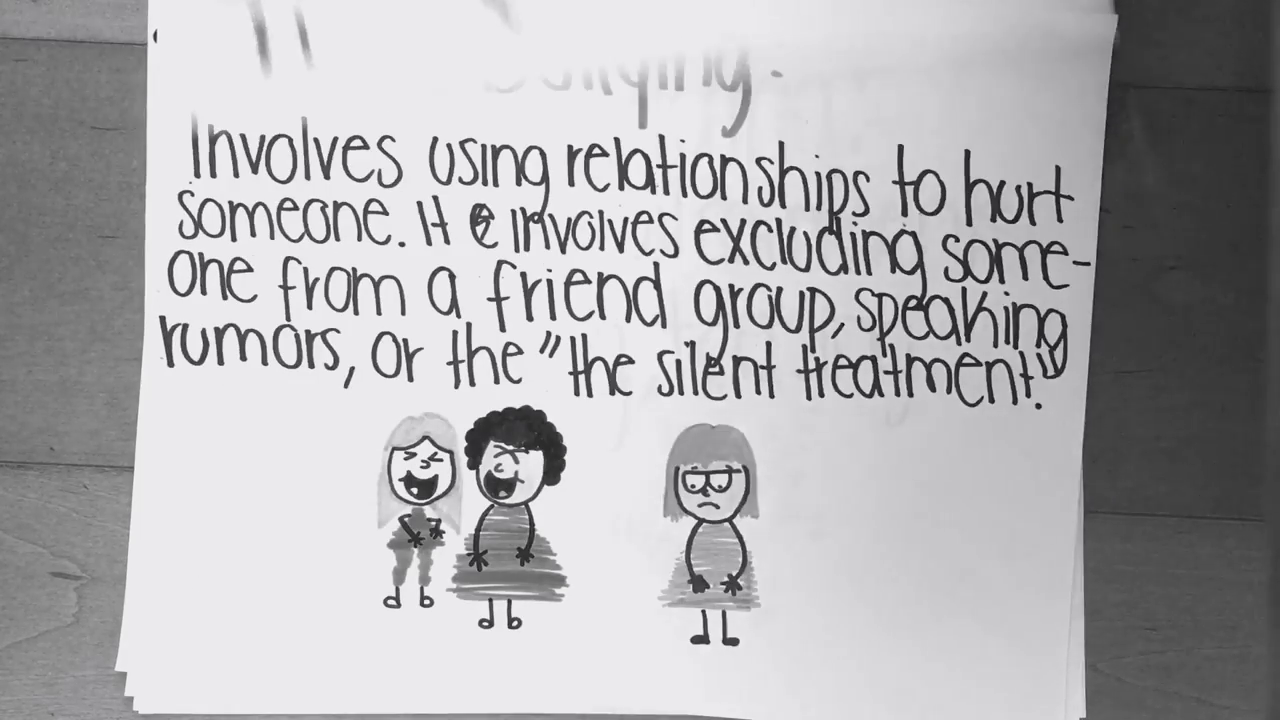 Involves using relationships to hurt
someone. It involves excluding some-
one from a friend group, speaking
rumors, or the "the silent treatment."